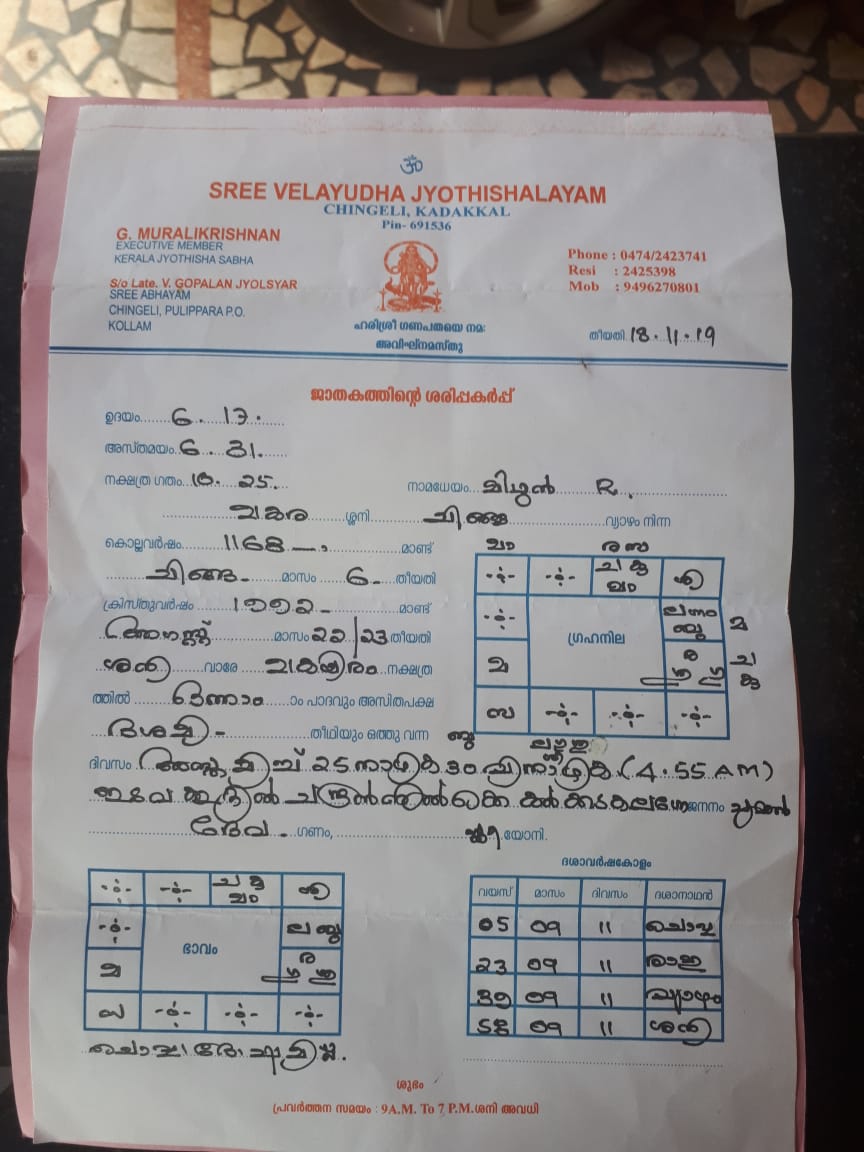 ॐ
SREE VELAYUDHA JYOTHISHALAYAM
CHINGELI, KADAKKAL
Pin- 691536
G. MURALIKRISHNAN
EXECUTIVE MEMBER
KERALA JYOTHISHA SABHA
S/o Late. V. GOPALAN JYOLSYAR
SREE ABHAYAM
CHINGELI, PULIPPARA P.O.
KOLLAM
Phone : 0474/2423741
Resi : 2425398
Mob : 9496270801
ഹരിശ്രീ ഗണപതയെ നമഃ
അവിഘ്നമസ്തു
തീയതി 18.11.19
ജാതകത്തിന്റെ ശരിപ്പകർപ്പ്
ഉദയം 6. 17.
അസ്തമയം 6. 31.
നക്ഷത്ര ഗതം 10. 25. നാമധേയം മിഥുൻ R.
മകര ശ്ശനി ചിങ്ങ വ്യാഴം നിന്ന
കൊല്ലവർഷം 1168 മാണ്ട്
ചിങ്ങ മാസം 6 തീയതി
ക്രിസ്തുവർഷം 1992 മാണ്ട്
ആഗസ്റ്റ് മാസം 22/23 തീയതി
ശനി വാരേ മകയിരം നക്ഷത്ര
ത്തിൽ ഒന്നാം ാം പാദവും അസിതപക്ഷ
ദശമി തീഥിയും ഒത്തു വന്ന
ദിവസം അസ്തമിച്ച് 25 നാഴിക 30 വിനാഴിക (4.55 AM)
ജനനം
ദേവ ഗണം, യോനി.
ഗ്രഹനില
ച കു
മാ
ശി
ലഗ്നം
ബു
ര
മ
സ
ഭാവം
ച കു
മാ
ശി
ല ബു
ര
മ
സ
ദശാവർഷകോളം
വയസ് മാസം ദിവസം ദശാനാഥൻ
05 09 11 ചൊവ്വ
23 09 11 രാഹു
39 09 11 വ്യാഴം
58 09 11 ശനി
ചൊവ്വാദോഷമില്ല.
ശുഭം
പ്രവർത്തന സമയം : 9A.M. To 7 P.M.ശനി അവധി